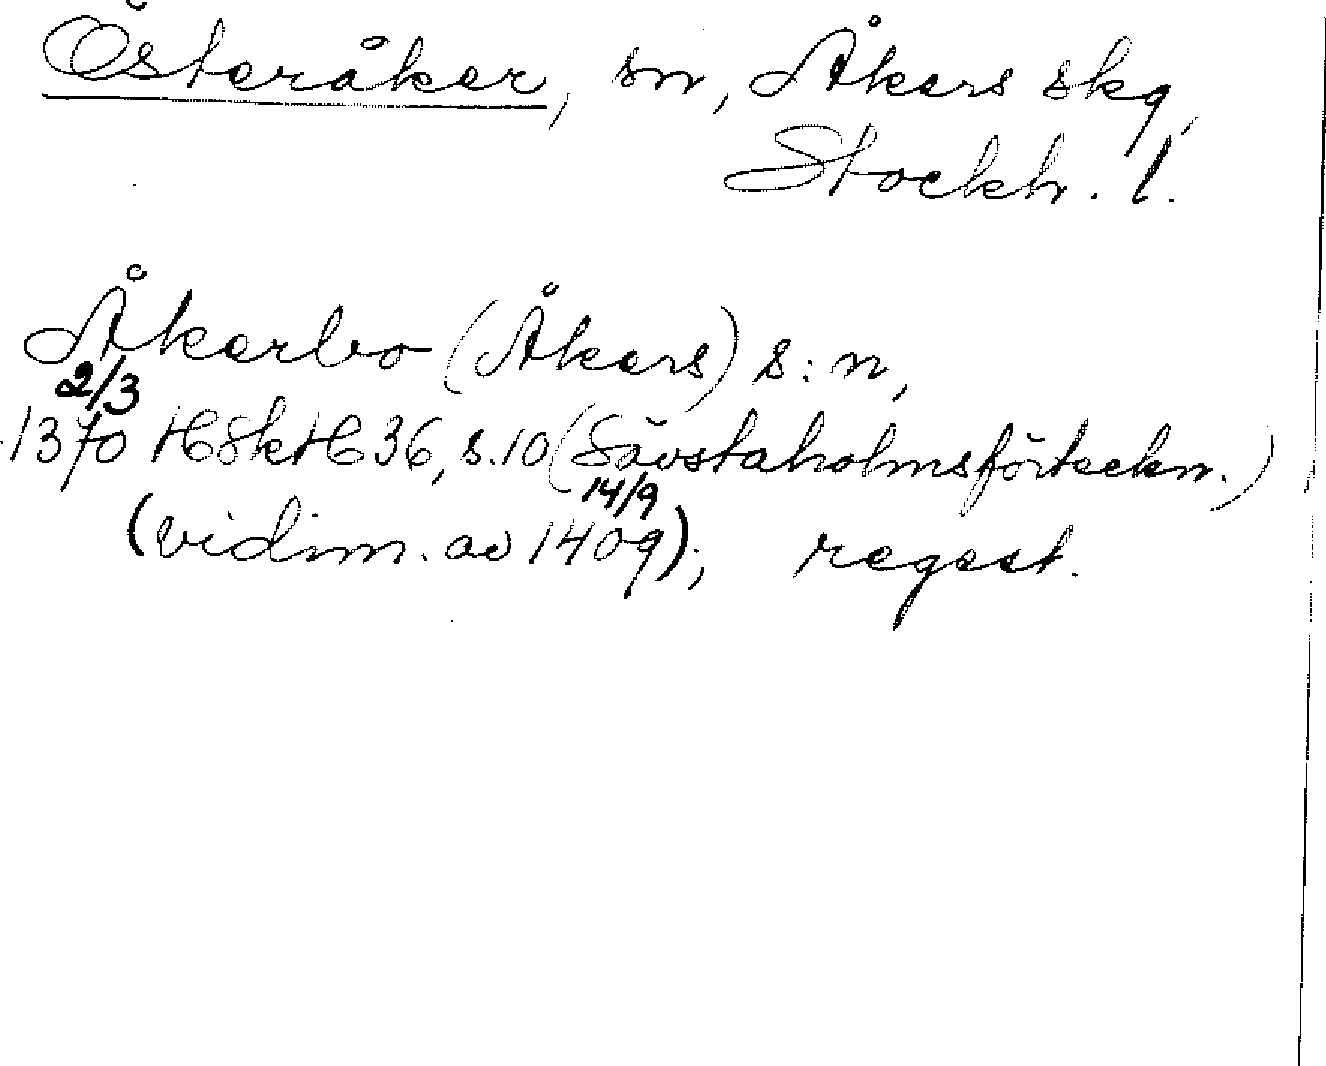 Österåker, sn, Åkers skg,
Stockh. l.
Åkerbo (Åkers) s:n,
2/3
1370 HSkH 36, s. 10 (Sävstaholmsförteckn.)
14/9
(vidim. av 1409); regest.